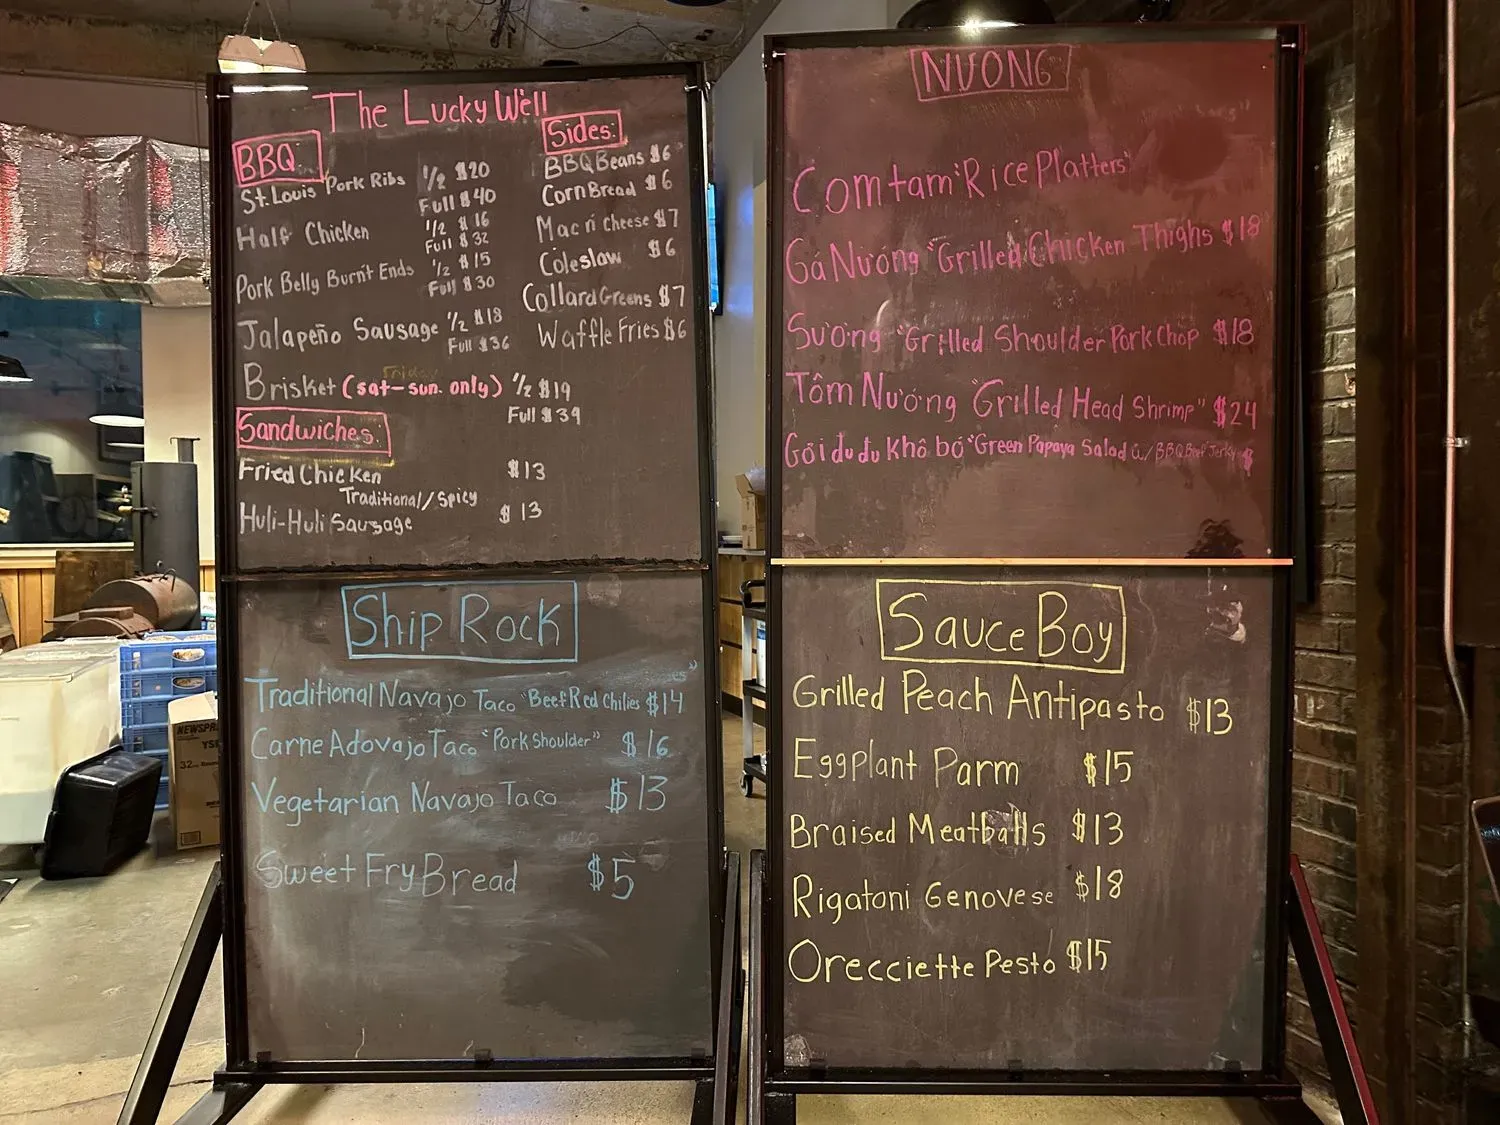 The Lucky Well
BBQ:
St. Louis Pork Ribs 1/2 $20
Full $40
Half Chicken 1/2 $16
Full $32
Pork Belly Burnt Ends 1/2 $15
Full $30
Jalapeño Sausage 1/2 $18
Full $36
Brisket (sat-sun. only) 1/2 $19
Friday
Full $39
Sides:
BBQ Beans $6
Corn Bread $6
Mac n' Cheese $7
Coleslaw $6
Collard Greens $7
Waffle Fries $6
Sandwiches:
Fried Chicken $13
Traditional/Spicy
Huli-Huli Sausage $13
Ship Rock
Traditional Navajo Taco "Beef Red Chilies $14
Carne Adovajo Taco "Pork Shoulder" $16
Vegetarian Navajo Taco $13
Sweet Fry Bread $5
NƯONG
Com tam "Rice Platters"
Gá Nướng "Grilled Chicken Thighs $18
Sương "Grilled Shoulder Pork Chop $18
Tôm Nướng "Grilled Head Shrimp" $24
Gỏi du du khô bó "Green Papaya Salad w/ BBQ Beef Jerky $
Sauce Boy
Grilled Peach Antipasto $13
Eggplant Parm $15
Braised Meatballs $13
Rigatoni Genovese $18
Orecciette Pesto $15